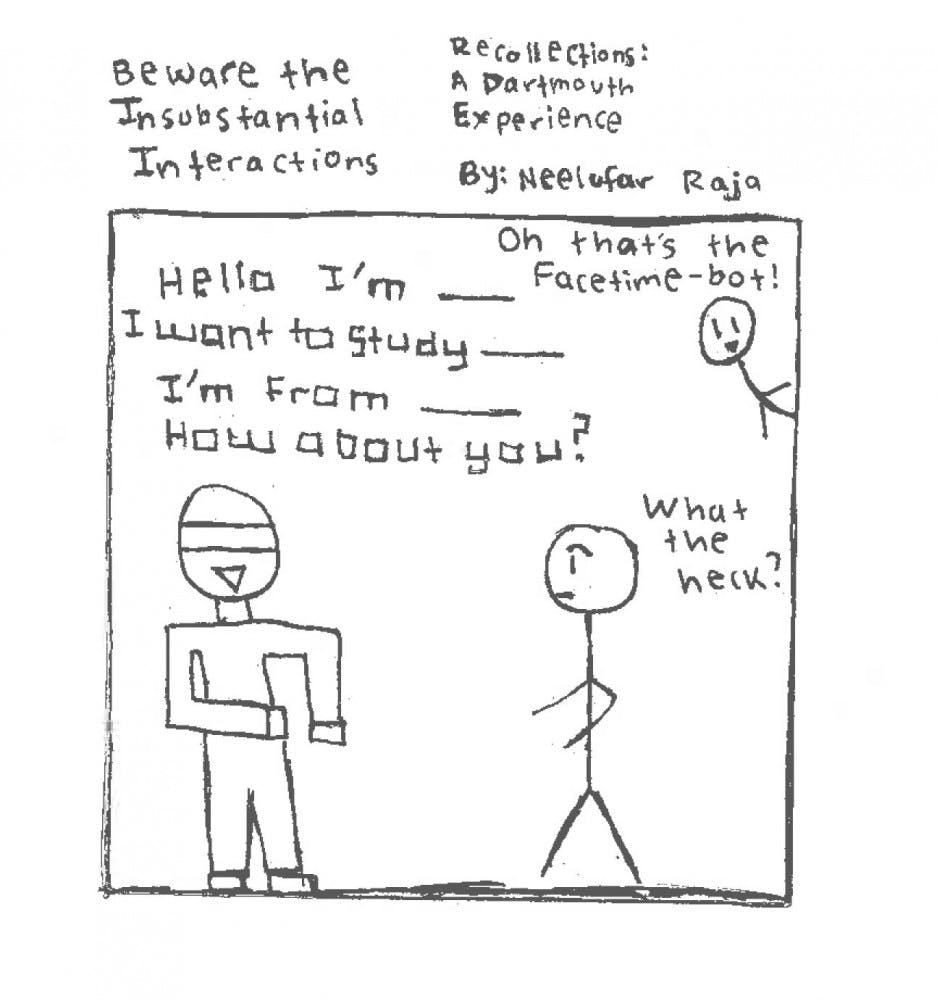 Beware the
Insubstantial
Interactions
Recollections:
A Dartmouth
Experience
By: Neelufar Raja
Oh that's the
Facetime-bot!
Hello I'm ___
I want to study ___
I'm From ___
How about you?
What
the
heck?